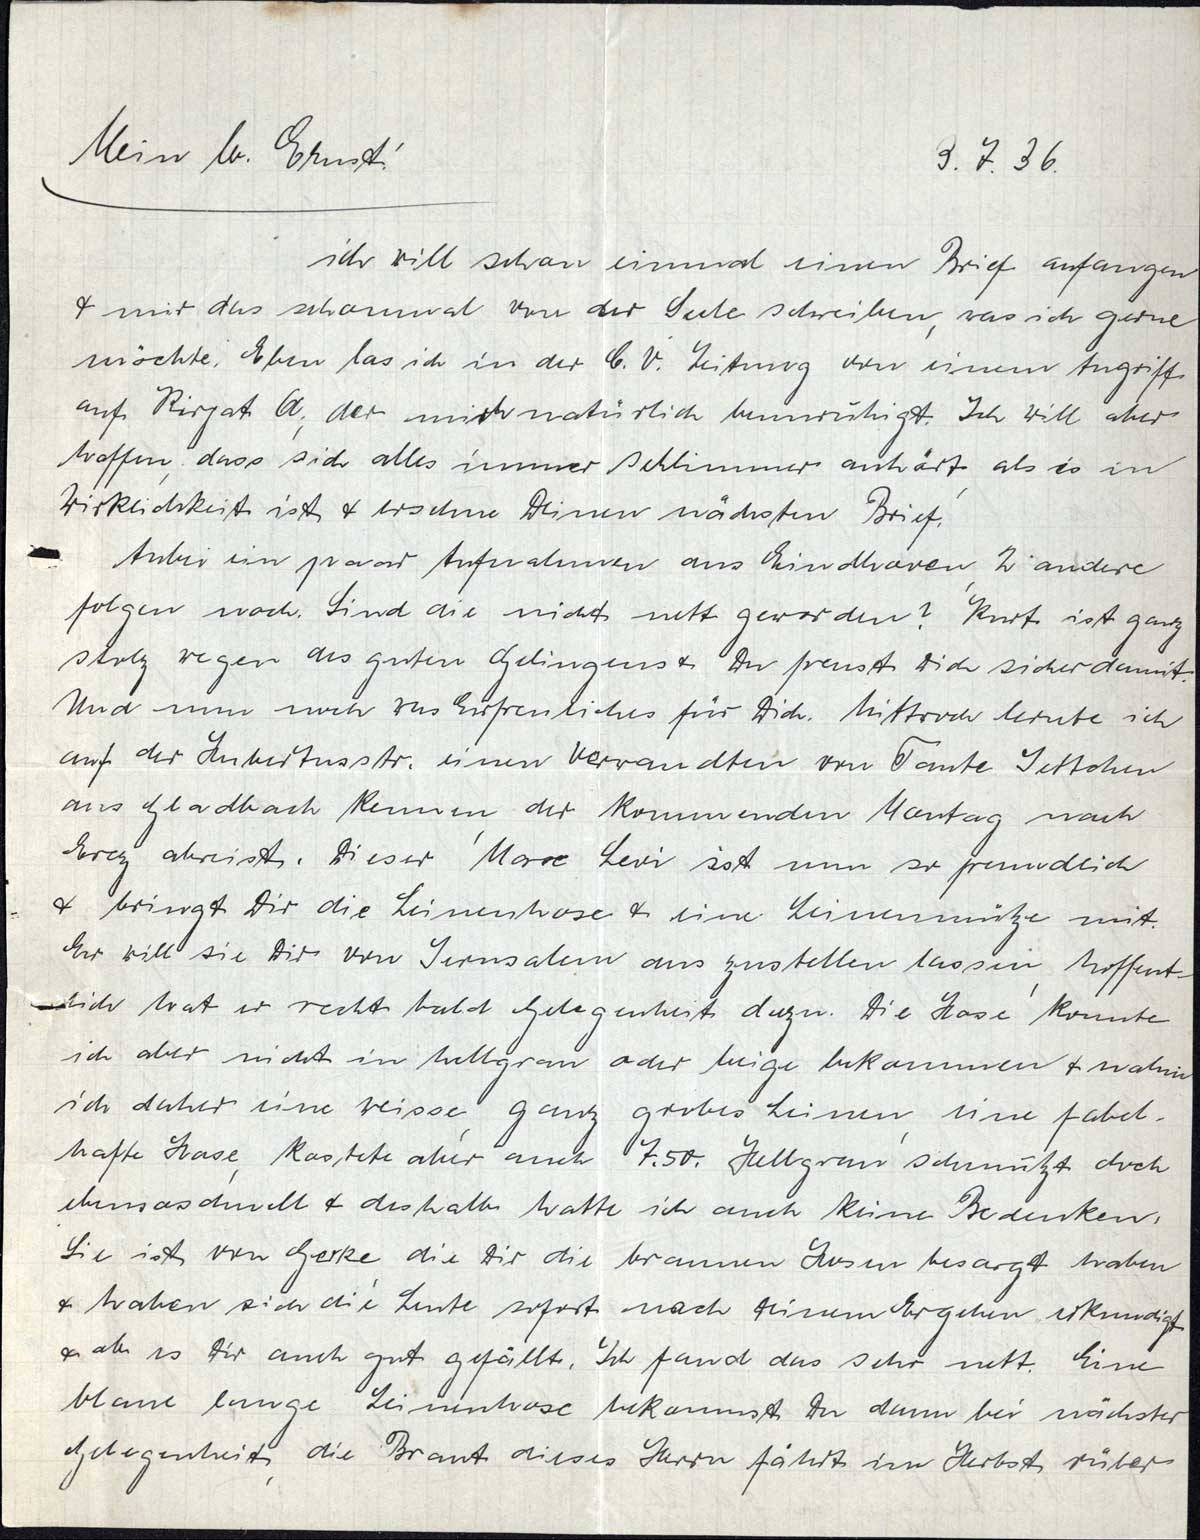 Mein lb. Ernst!
3. 7. 36.
ich will schon einmal einen Brief anfangen
& mir das schonmal von der Seele schreiben, was ich gerne
möchte. Eben las ich in der C. V. Zeitung von einem Angriff
auf Kirjat A, der mich natürlich beunruhigt. Ich will aber
hoffen, dass sich alles immer schlimmer anhört, als es in
Wirklichkeit ist & ersehne Deinen nächsten Brief.
Anbei ein paar Aufnahmen aus Eindhoven, 2 andere
folgen noch. Sind die nicht nett geworden? Kurt ist ganz
stolz wegen des guten Gelingens & Du freust Dich sicher damit.
Und nun noch was Erfreuliches für Dich. Mittwoch lernte ich
auf der Hubertusstr. einen Verwandten von Tante Settchen
aus Gladbach kennen, der kommenden Montag nach
Erez abreist. Dieser Marx Levi ist nun so freundlich
& bringt Dir die Leinenhose & eine Leinenmütze mit.
Er will sie Dir von Jerusalem aus zustellen lassen, hoffent-
lich hat er recht bald Gelegenheit dazu. Die Hose konnte
ich aber nicht in hellgrau oder beige bekommen & nahm
ich daher eine weisse, ganz grobes Leinen, eine fabel-
hafte Hose, kostete aber auch 7.50. Hellgrau schmutzt doch
ebensoschnell & deshalb hatte ich auch keine Bedenken.
Sie ist von Gerke die Dir die braunen Hosen besorgt haben
& haben sich die Leute sofort nach Deinem Ergehen erkundigt
& ob es Dir auch gut gefällt. Ich fand das sehr nett. Eine
blaue lange Leinenhose bekommst Du dann bei nächster
Gelegenheit, die Braut dieses Herrn fährt im Herbst rüber